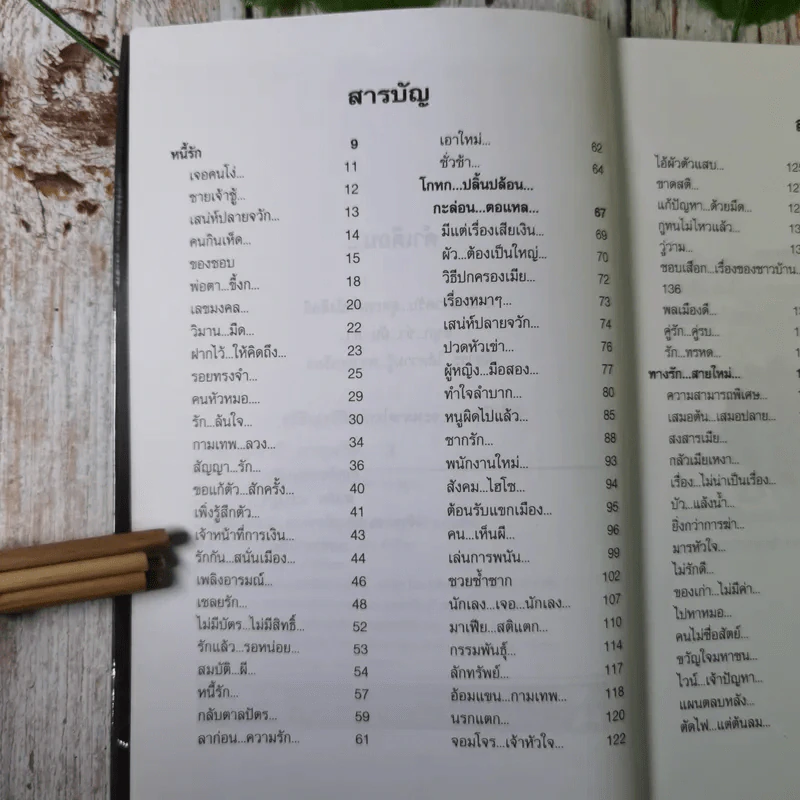 สารบัญ
หนี้รัก 9
เจอคนโง่... 11
ชายเจ้าชู้... 12
เสน่ห์ปลายจวัก... 13
คนกินเห็ด... 14
ของชอบ 15
พ่อตา...ขี้งก... 18
เลขมงคล... 20
วิมาน...มืด... 22
ฝากไว้...ให้คิดถึง... 23
รอยทรงจำ... 25
คนหัวหมอ.... 29
รัก...ล้นใจ... 30
กามเทพ...ลวง... 34
สัญญา...รัก... 36
ขอแก้ตัว...สักครั้ง... 40
เพิ่งรู้สึกตัว... 41
เจ้าหน้าที่การเงิน... 43
รักกัน...สนั่นเมือง... 44
เพลิงอารมณ์... 46
เชลยรัก... 48
ไม่มีบัตร...ไม่มีสิทธิ์... 52
รักแล้ว...รอหน่อย... 53
สมบัติ...ผี... 54
หนี้รัก... 57
กลับตาลปัตร... 59
ลาก่อน...ความรัก... 61
เอาใหม่... 62
ชั่วช้า... 64
โกหก...ปลิ้นปล้อน...
กะล่อน...ตอแหล... 67
มีแต่เรื่องเสียเงิน... 69
ผัว...ต้องเป็นใหญ่... 70
วิธีปกครองเมีย... 72
เรื่องหมาๆ... 73
เสน่ห์ปลายจวัก... 74
ปวดหัวเข่า... 76
ผู้หญิง...มือสอง... 77
ทำใจลำบาก... 80
หนูผิดไปแล้ว... 85
ซากรัก... 88
พนักงานใหม่... 93
สังคม...ไฮโซ... 94
ต้อนรับแขกเมือง... 95
คน...เห็นผี... 96
เล่นการพนัน... 99
ชวยซ้ำซาก 102
นักเลง...เจอ...นักเลง... 107
มาเฟีย...สติแตก... 110
กรรมพันธุ์... 114
ลักทรัพย์... 117
อ้อมแขน...กามเทพ... 118
นรกแตก... 120
จอมโจร...เจ้าหัวใจ... 122
ไอ้ผัวตัวแสบ...
ขาดสติ...
แก้ปัญหา...ด้วยมีด...
กูทนไม่ไหวแล้ว...
วู่วาม...
ชอบเสือก...เรื่องของชาวบ้าน...
136
พลเมืองดี...
คู่รัก...คู่รบ...
รัก...ทรหด...
ทางรัก...สายใหม่...
ความสามารถพิเศษ...
เสมอต้น...เสมอปลาย...
สงสารเมีย...
กลัวเมียเหงา...
เรื่อง...ไม่น่าเป็นเรื่อง...
บัว...แล้งน้ำ...
ยิ่งกว่าการฆ่า...
มารหัวใจ...
ไม่รักดี...
ของเก่า...ไม่มีค่า...
ไปหาหมอ...
คนไม่ซื่อสัตย์...
ขวัญใจมหาชน...
ไวน์...เจ้าปัญหา...
แผนตลบหลัง...
ตัดไฟ...แต่ต้นลม...